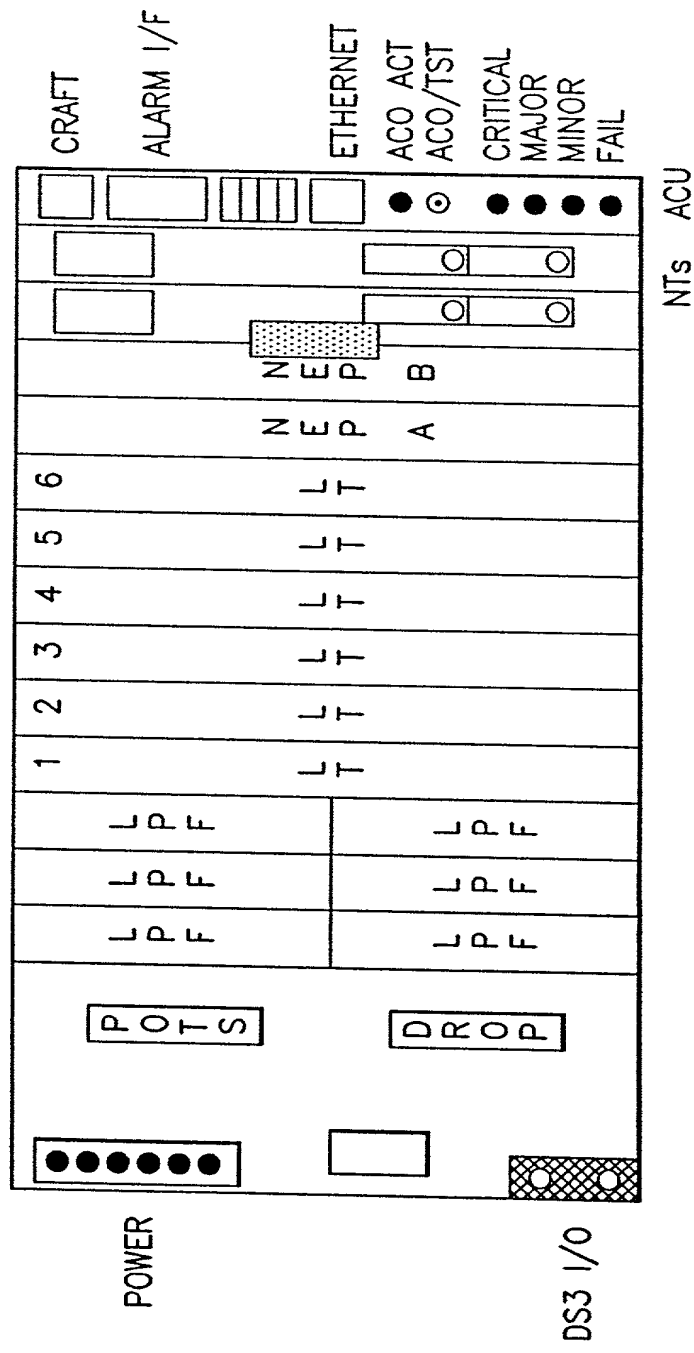 CRAFT
ALARM I/F
ETHERNET
ACO ACT
ACO/TST
CRITICAL
MAJOR
MINOR
FAIL
ACU
NTs
NEP B
NEP A
6
LT
5
LT
4
LT
3
LT
2
LT
1
LT
LPF
LPF
LPF
LPF
LPF
LPF
POTS
DROP
POWER
DS3 I/O